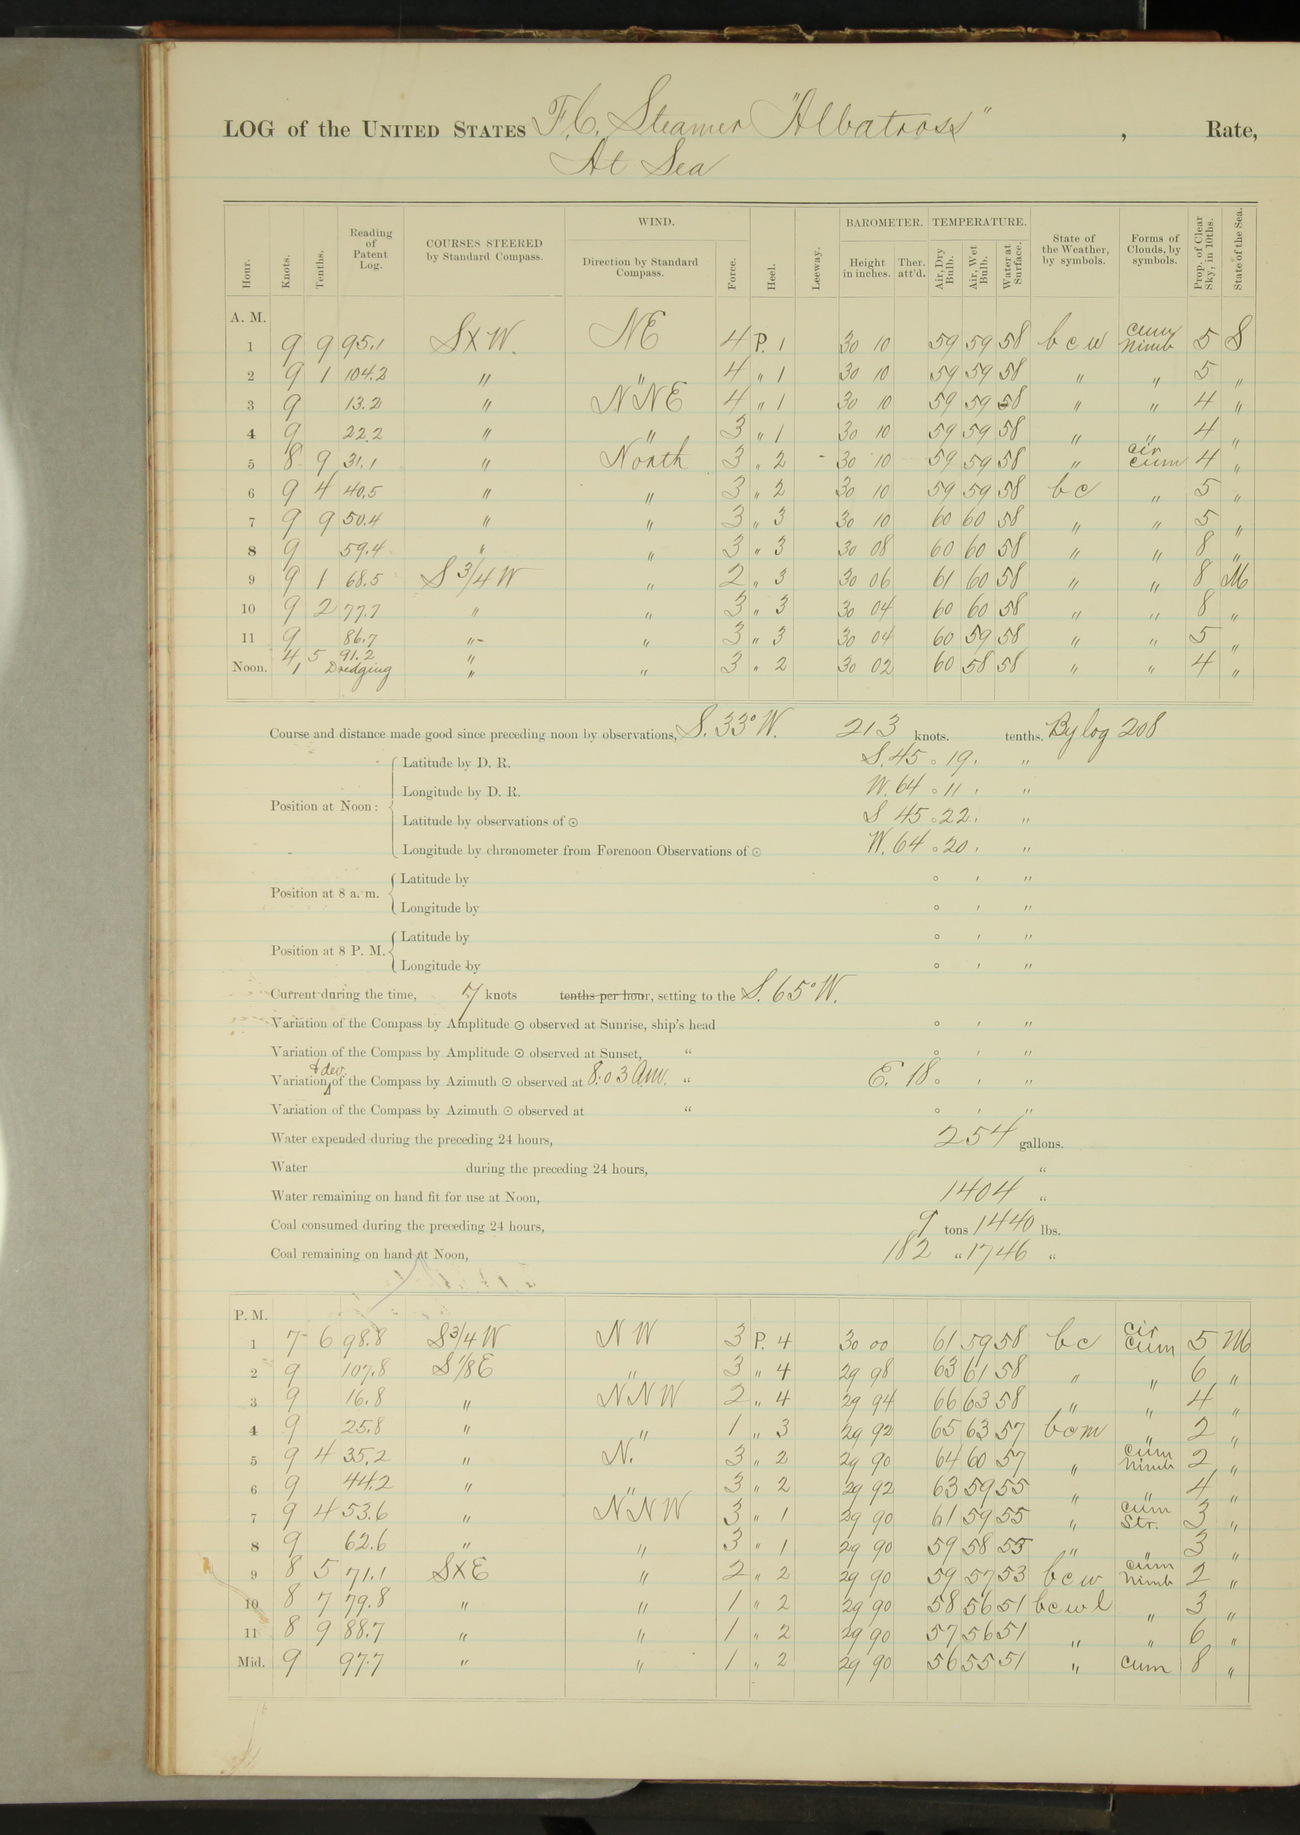 LOG of the UNITED STATES F.C. Steamer "Albatross" , Rate,
At Sea
Hour. Knots. Tenths. Reading of Patent Log. COURSES STEERED by Standard Compass. WIND. Direction by Standard Compass. Force. Heel. Leeway. BAROMETER. Height in inches. Ther. att'd. TEMPERATURE. Air, Dry Bulb. Air, Wet Bulb. Water at Surface. State of the Weather, by symbols. Forms of Clouds, by symbols. Prop. of Clear Sky, in 10ths. State of the Sea.
A. M.
1 9 9 95.1 S X W. NE 4 P. 1 30 10 59 59 58 b c w cum Nimb 5 S
2 9 1 104.2 " " 4 " 1 30 10 59 59 58 " " 5 "
3 9 13.2 " NNE 4 " 1 30 10 59 59 58 " " 4 "
4 9 22.2 " " 3 " 1 30 10 59 59 58 " " 4 "
5 8 9 31.1 " North 3 " 2 - 30 10 59 59 58 " cir cum 4 "
6 9 4 40.5 " " 3 " 2 30 10 59 59 58 b c " 5 "
7 9 9 50.4 " " 3 " 3 30 10 60 60 58 " " 5 "
8 9 59.4 " " 3 " 3 30 08 60 60 58 " " 8 "
9 9 1 68.5 S 3/4 W " 2 " 3 30 06 61 60 58 " " 8 M
10 9 2 77.7 " " 3 " 3 30 04 60 60 58 " " 8 "
11 9 86.7 " " 3 " 3 30 04 60 59 58 " " 5 "
4 5 91.2 "
Noon. 1 Dredging " " 3 " 2 30 02 60 58 58 " " 4 "
Course and distance made good since preceding noon by observations, S. 33° W. 213 knots. tenths. By log 208
Position at Noon:
Latitude by D. R. S. 45 ° 19 ' "
Longitude by D. R. W. 64 ° 11 ' "
Latitude by observations of ☉ S 45 ° 22 ' "
Longitude by chronometer from Forenoon Observations of ☉ W. 64 ° 20 ' "
Position at 8 a. m.
Latitude by ° ' "
Longitude by ° ' "
Position at 8 P. M.
Latitude by ° ' "
Longitude by ° ' "
Current during the time, 7 knots tenths per hour, setting to the S. 65° W.
Variation of the Compass by Amplitude ☉ observed at Sunrise, ship's head ° ' "
Variation of the Compass by Amplitude ☉ observed at Sunset, " ° ' "
Variation & dev. of the Compass by Azimuth ☉ observed at 8:03 A.M. " E. 18 ° ' "
Variation of the Compass by Azimuth ☉ observed at " ° ' "
Water expended during the preceding 24 hours, 254 gallons.
Water during the preceding 24 hours, "
Water remaining on hand fit for use at Noon, 1404 "
Coal consumed during the preceding 24 hours, 9 tons 1440 lbs.
Coal remaining on hand at Noon, 182 " 1746 "
P. M.
1 7 6 98.8 S 3/4 W NW 3 P. 4 30 00 61 59 58 b c cir cum 5 M
2 9 107.8 S 1/8 E " 3 " 4 29 98 63 61 58 " " 6 "
3 9 16.8 " NNW 2 " 4 29 94 66 63 58 " " 4 "
4 9 25.8 " " 1 " 3 29 92 65 63 57 bcm " 2 "
5 9 4 35.2 " N. 3 " 2 29 90 64 60 57 " cum Nimb 2 "
6 9 44.2 " " 3 " 2 29 92 63 59 55 " " 4 "
7 9 4 53.6 " NNW 3 " 1 29 90 61 59 55 " cum Str. 3 "
8 9 62.6 " " 3 " 1 29 90 59 58 55 " " 3 "
9 8 5 71.1 S X E " 2 " 2 29 90 59 57 53 b c w cum Nimb 2 "
10 8 7 79.8 " " 1 " 2 29 90 58 56 51 b c w l " 3 "
11 8 9 88.7 " " 1 " 2 29 90 57 56 51 " " 6 "
Mid. 9 97.7 " " 1 " 2 29 90 56 55 51 " cum 8 "